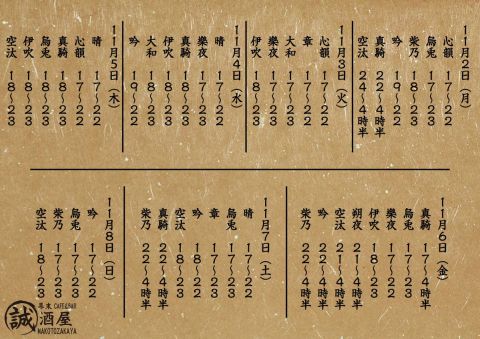 11月2日(月)
心韻 17〜22
烏兎 17〜23
柴乃 18〜23
吟 19〜22
真騎 22〜4時半
空汰 24〜4時半
11月3日(火)
心韻 17〜22
章 17〜22
大和 17〜23
樂夜 17〜23
伊吹 18〜23
11月4日(水)
晴 17〜22
樂夜 17〜22
真騎 18〜23
伊吹 18〜23
大和 18〜23
吟 19〜22
11月5日(木)
晴 17〜22
心韻 17〜22
真騎 18〜22
烏兎 18〜23
伊吹 18〜23
空汰 18〜23
11月6日(金)
真騎 17〜4時半
烏兎 17〜23
柴乃 17〜23
樂夜 17〜22
伊吹 18〜23
朔夜 21〜4時半
空汰 21〜4時半
吟 22〜4時半
11月7日(土)
晴 17〜22
烏兎 17〜22
章 17〜23
吟 17〜23
空汰 18〜23
真騎 22〜4時半
柴乃 22〜4時半
11月8日(日)
吟 17〜22
烏兎 17〜23
柴乃 17〜23
空汰 18〜23
幕末 CAFE&BAR
誠酒屋
MAKOTOZAKAYA